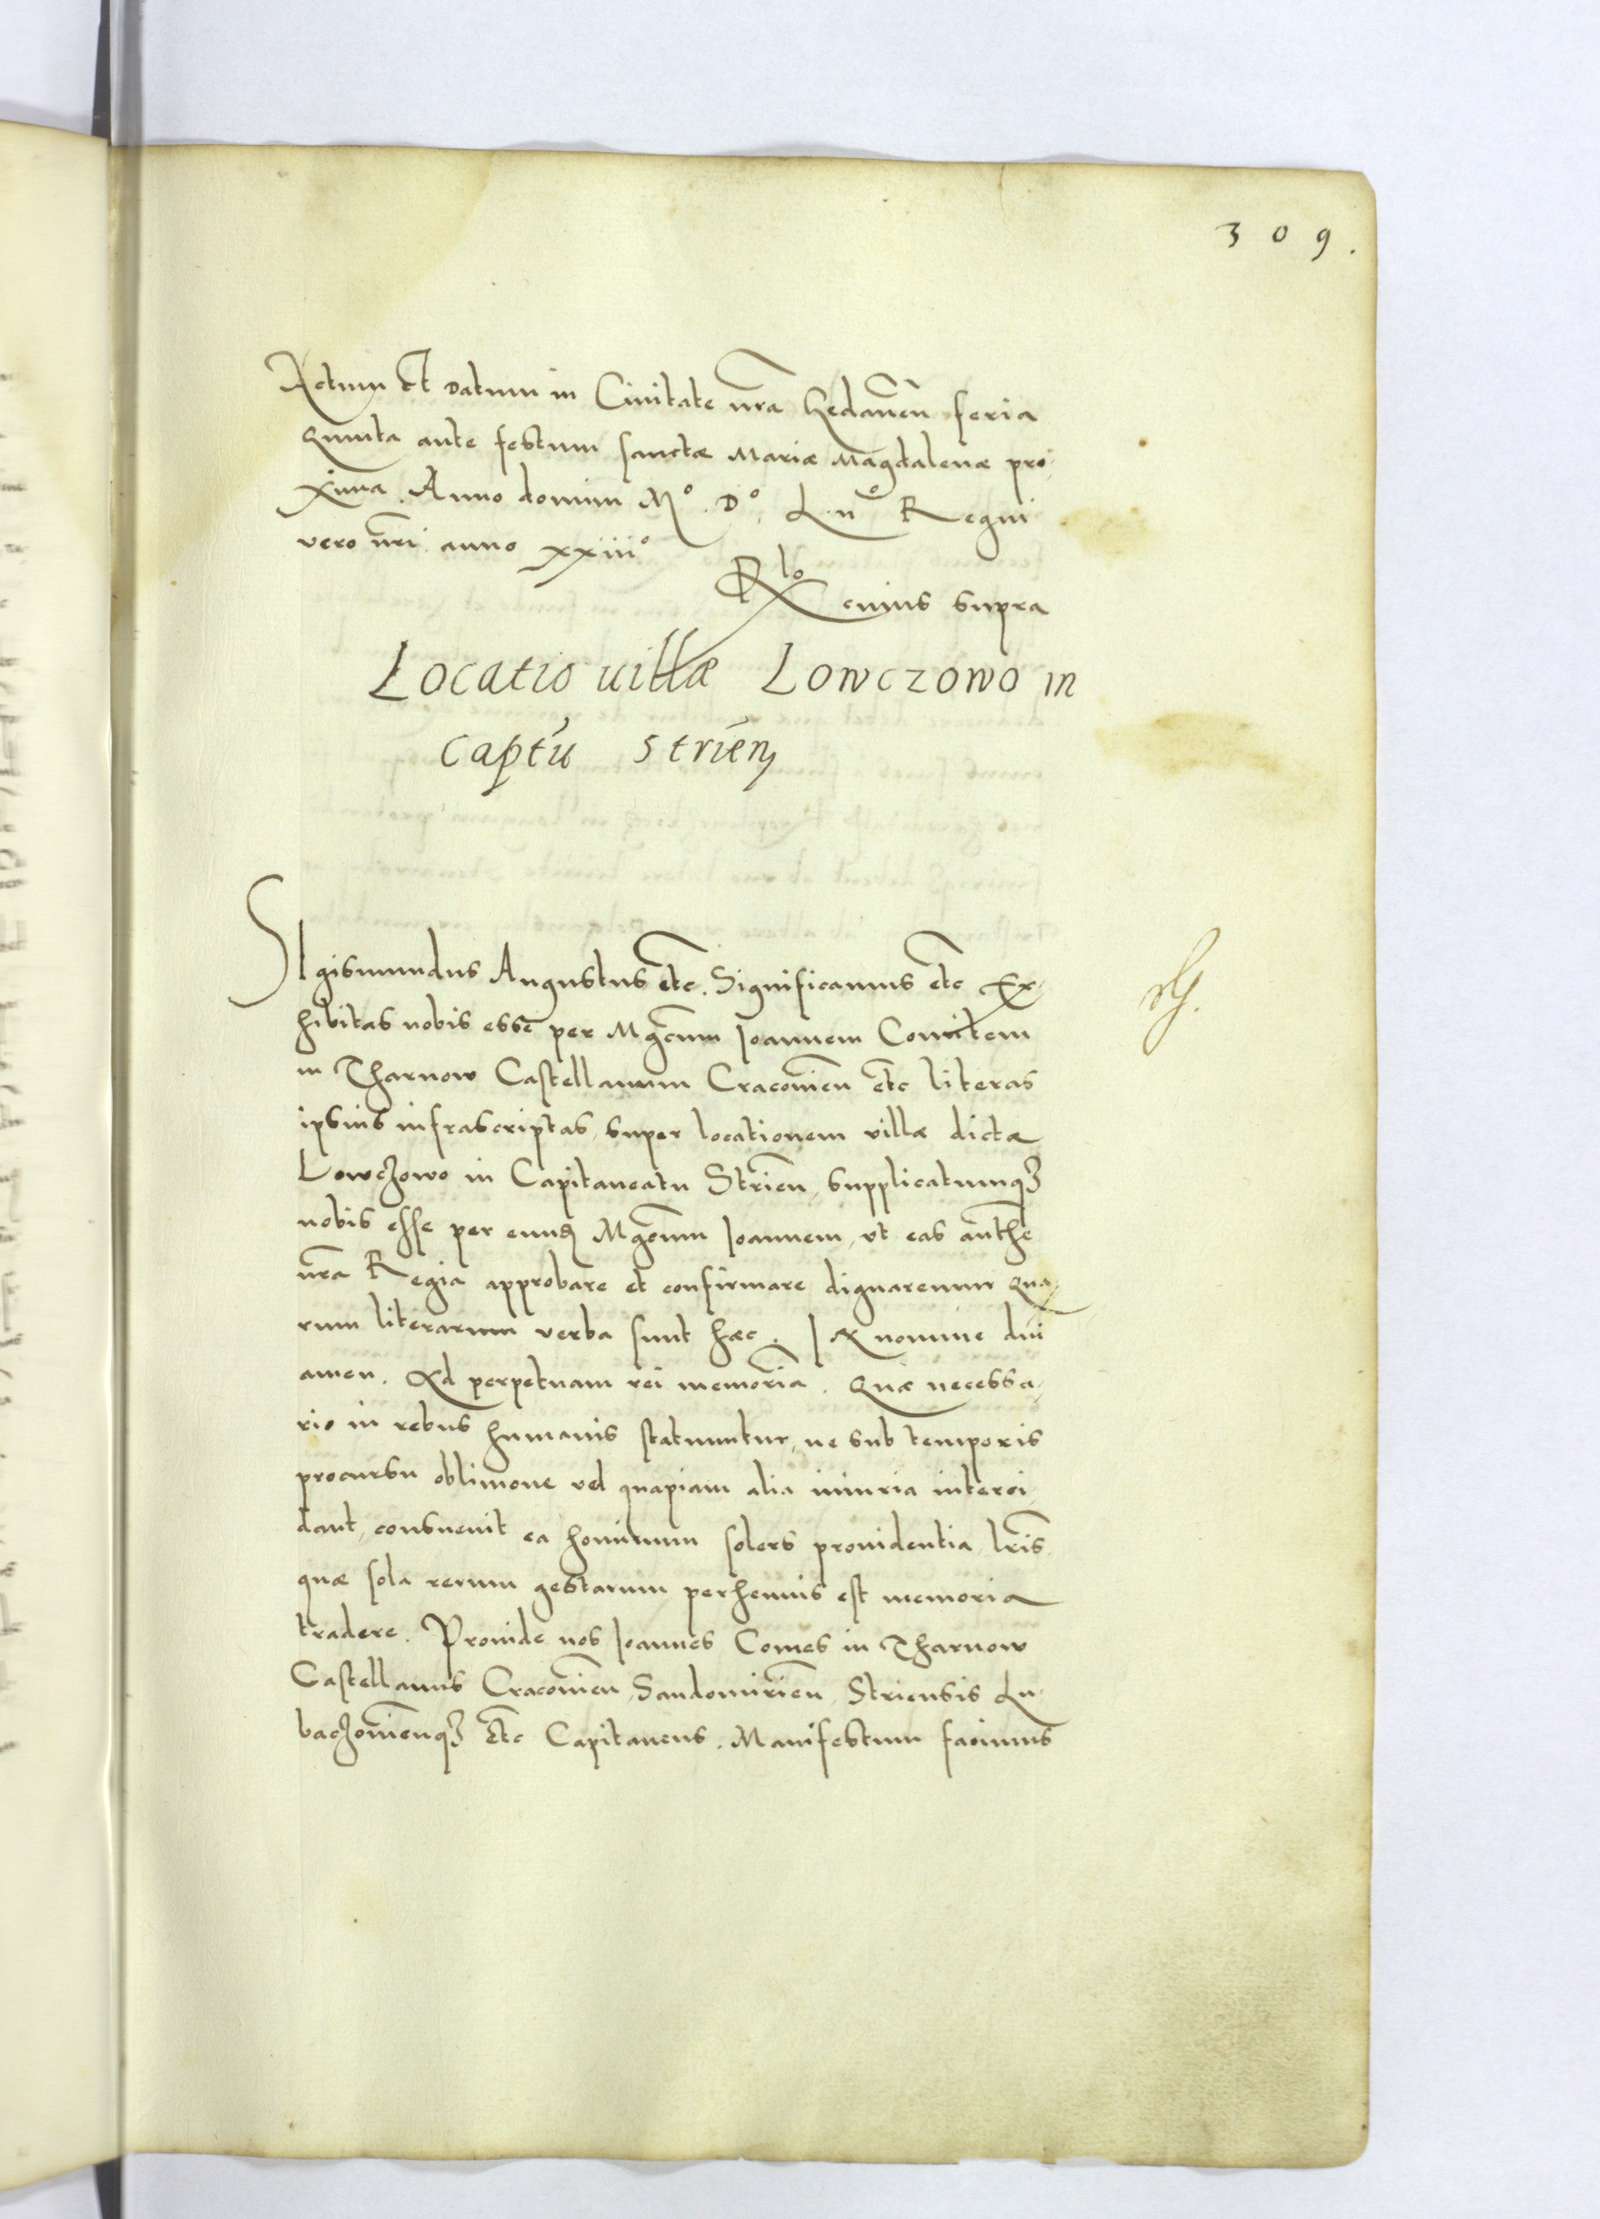 309.
Actum et datum in Ciuitate nr̃a Gedanen̄ feria
Quinta ante festum sanctæ Mariæ Magdalenæ pro,
xima. Anno domini Mº. Dº. L. IIº Regni
vero nr̃i anno xxiiiº
Rlo cuius supra
Locatio uillæ Lowczowo in
captũ strien̄
SIgismundus Augustus etc. Significamus etc Ex,
hibitas nobis esse per Mgcum Joannem Comitem
in Tharnow Castellanum Cracouien̄ etc literas
ipsius infrascriptas, super locationem villæ dictæ
Lowczowo in Capitaneatu Strien̄, supplicatumqȝ
nobis esse per eund Mgcum Joannem, vt eas authe
nr̃a Regia approbare et confirmare dignaremur Qua,
rum literarum verba sunt hæc. IN nomine dn̄i
amen. Ad perpetuam rei memoriã. Quæ necessa,
rio in rebus humanis statuuntur, ne sub temporis
procursu obliuione vel quapiam alia iniuria interci,
dant, consueuit ea hominum solers prouidentia lr̃is
quæ sola rerum gestarum perhennis est memoria
tradere. Proinde nos Joannes Comes in Tharnow
Castellanus Cracouien̄, Sandomirien̄, Striensis Lu,
baczouien̄qȝ etc Capitaneus. Manifestum facimus